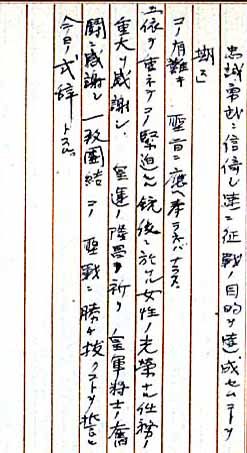 忠誠勇武ニ信倚シ速ニ征戦ノ目的ヲ達成セムコトヲ
期ス
コノ有難キ 聖旨ニ應ヘ奉ラネバナラヌ
依ッテ重ネテコノ緊迫セル銃後ニ於ケル女性ノ光榮ナル任務ノ
重大ヲ感謝シ 皇運ノ隆昌ヲ祈リ 皇軍将士ノ奮
闘ニ感謝シ 一致團結シテ 聖戦ニ勝チ抜クコトヲ誓ヒ
今日ノ式辞トスル。